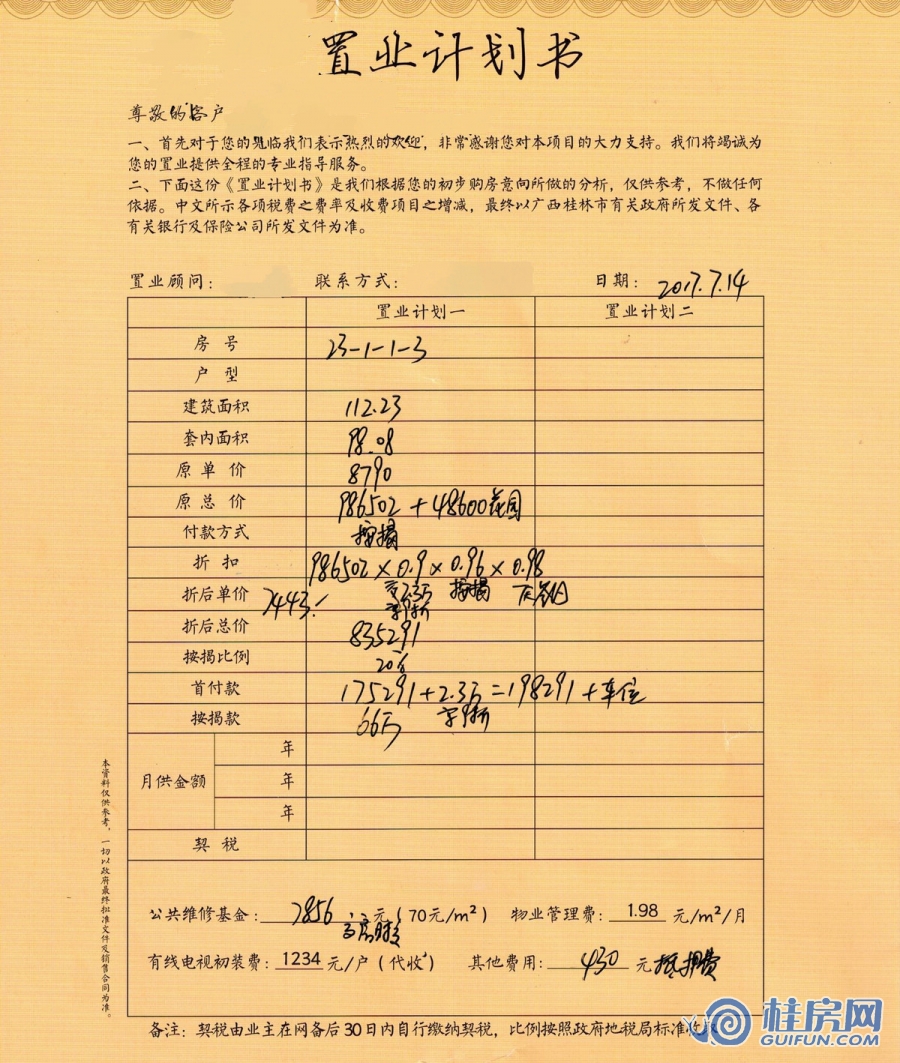 置业计划书
尊敬的客户
一、首先对于您的光临我们表示热烈的欢迎，非常感谢您对本项目的大力支持。我们将竭诚为
您的置业提供全程的专业指导服务。
二、下面这份《置业计划书》是我们根据您的初步购房意向所做的分析，仅供参考，不做任何
依据。中文所示各项税费之费率及收费项目之增减，最终以广西桂林市有关政府所发文件、各
有关银行及保险公司所发文件为准。
置业顾问： 联系方式： 日期： 2017.7.14
置业计划一 置业计划二
房号 23-1-1-3
户型
建筑面积 112.23
套内面积 98.08
原单价 8790
原总价 986502 + 48600花园
付款方式 按揭
折扣 986502 × 0.9 × 0.96 × 0.98
折后单价 7443 交2.3万 按揭
享9折
折后总价 835291
按揭比例 20%
首付款 175291 + 2.3万 = 198291 + 车位
按揭款 66万 享9折
月供金额 年
年
年
契税
公共维修基金： 7856 元（70元/m²） 物业管理费： 1.98 元/m²/月
交房时交
有线电视初装费： 1234 元/户（代收） 其他费用： 430 元 抵押费
备注：契税由业主在网备后30日内自行缴纳契税，比例按照政府地税局标准收取
本资料仅供参考，一切以政府最终批准文件及销售合同为准。
桂房网
GUIFUN.COM